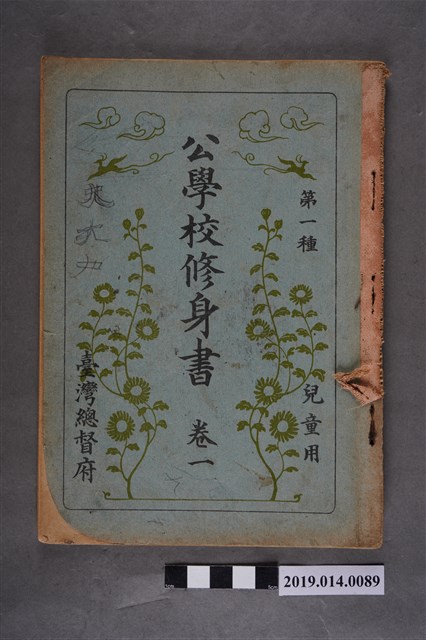 第一種
兒童用
公學校修身書 卷一
臺灣總督府
2019.014.0089